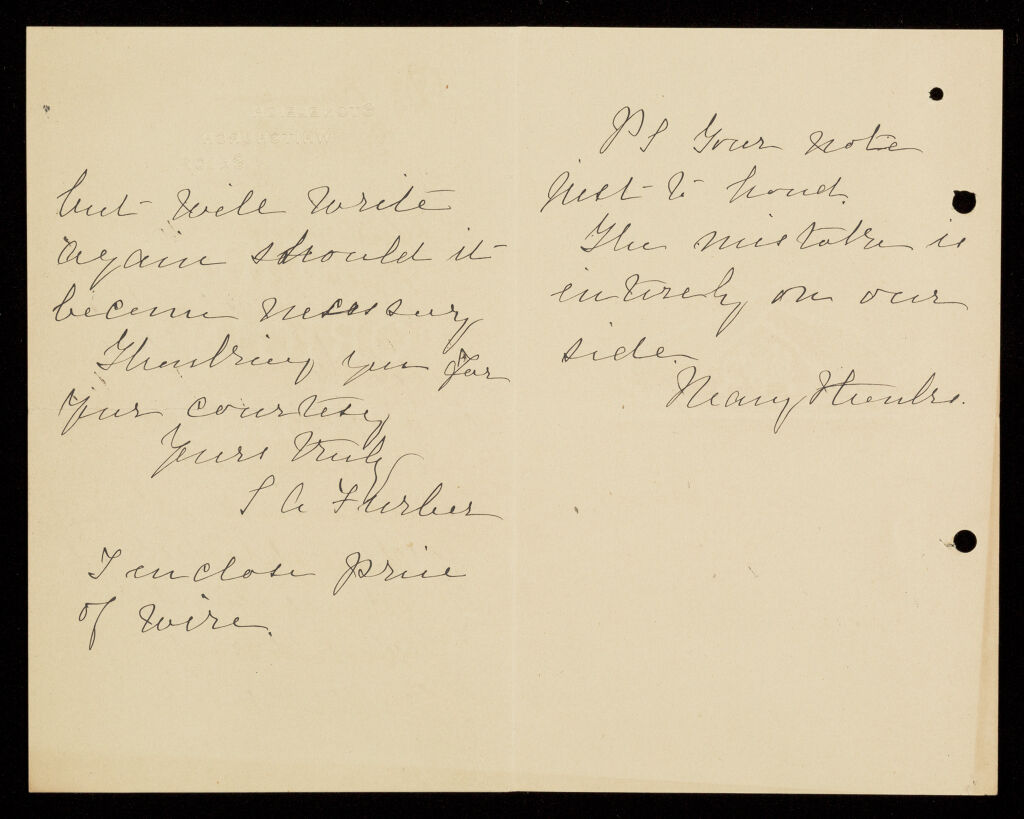 but will write
again should it
become necessary
Thanking you for
your courtesy
Yours truly
S A Furber
I enclose price
of wire.
PS Your note
just to hand.
The mistake is
entirely on our
side.
Many thanks.